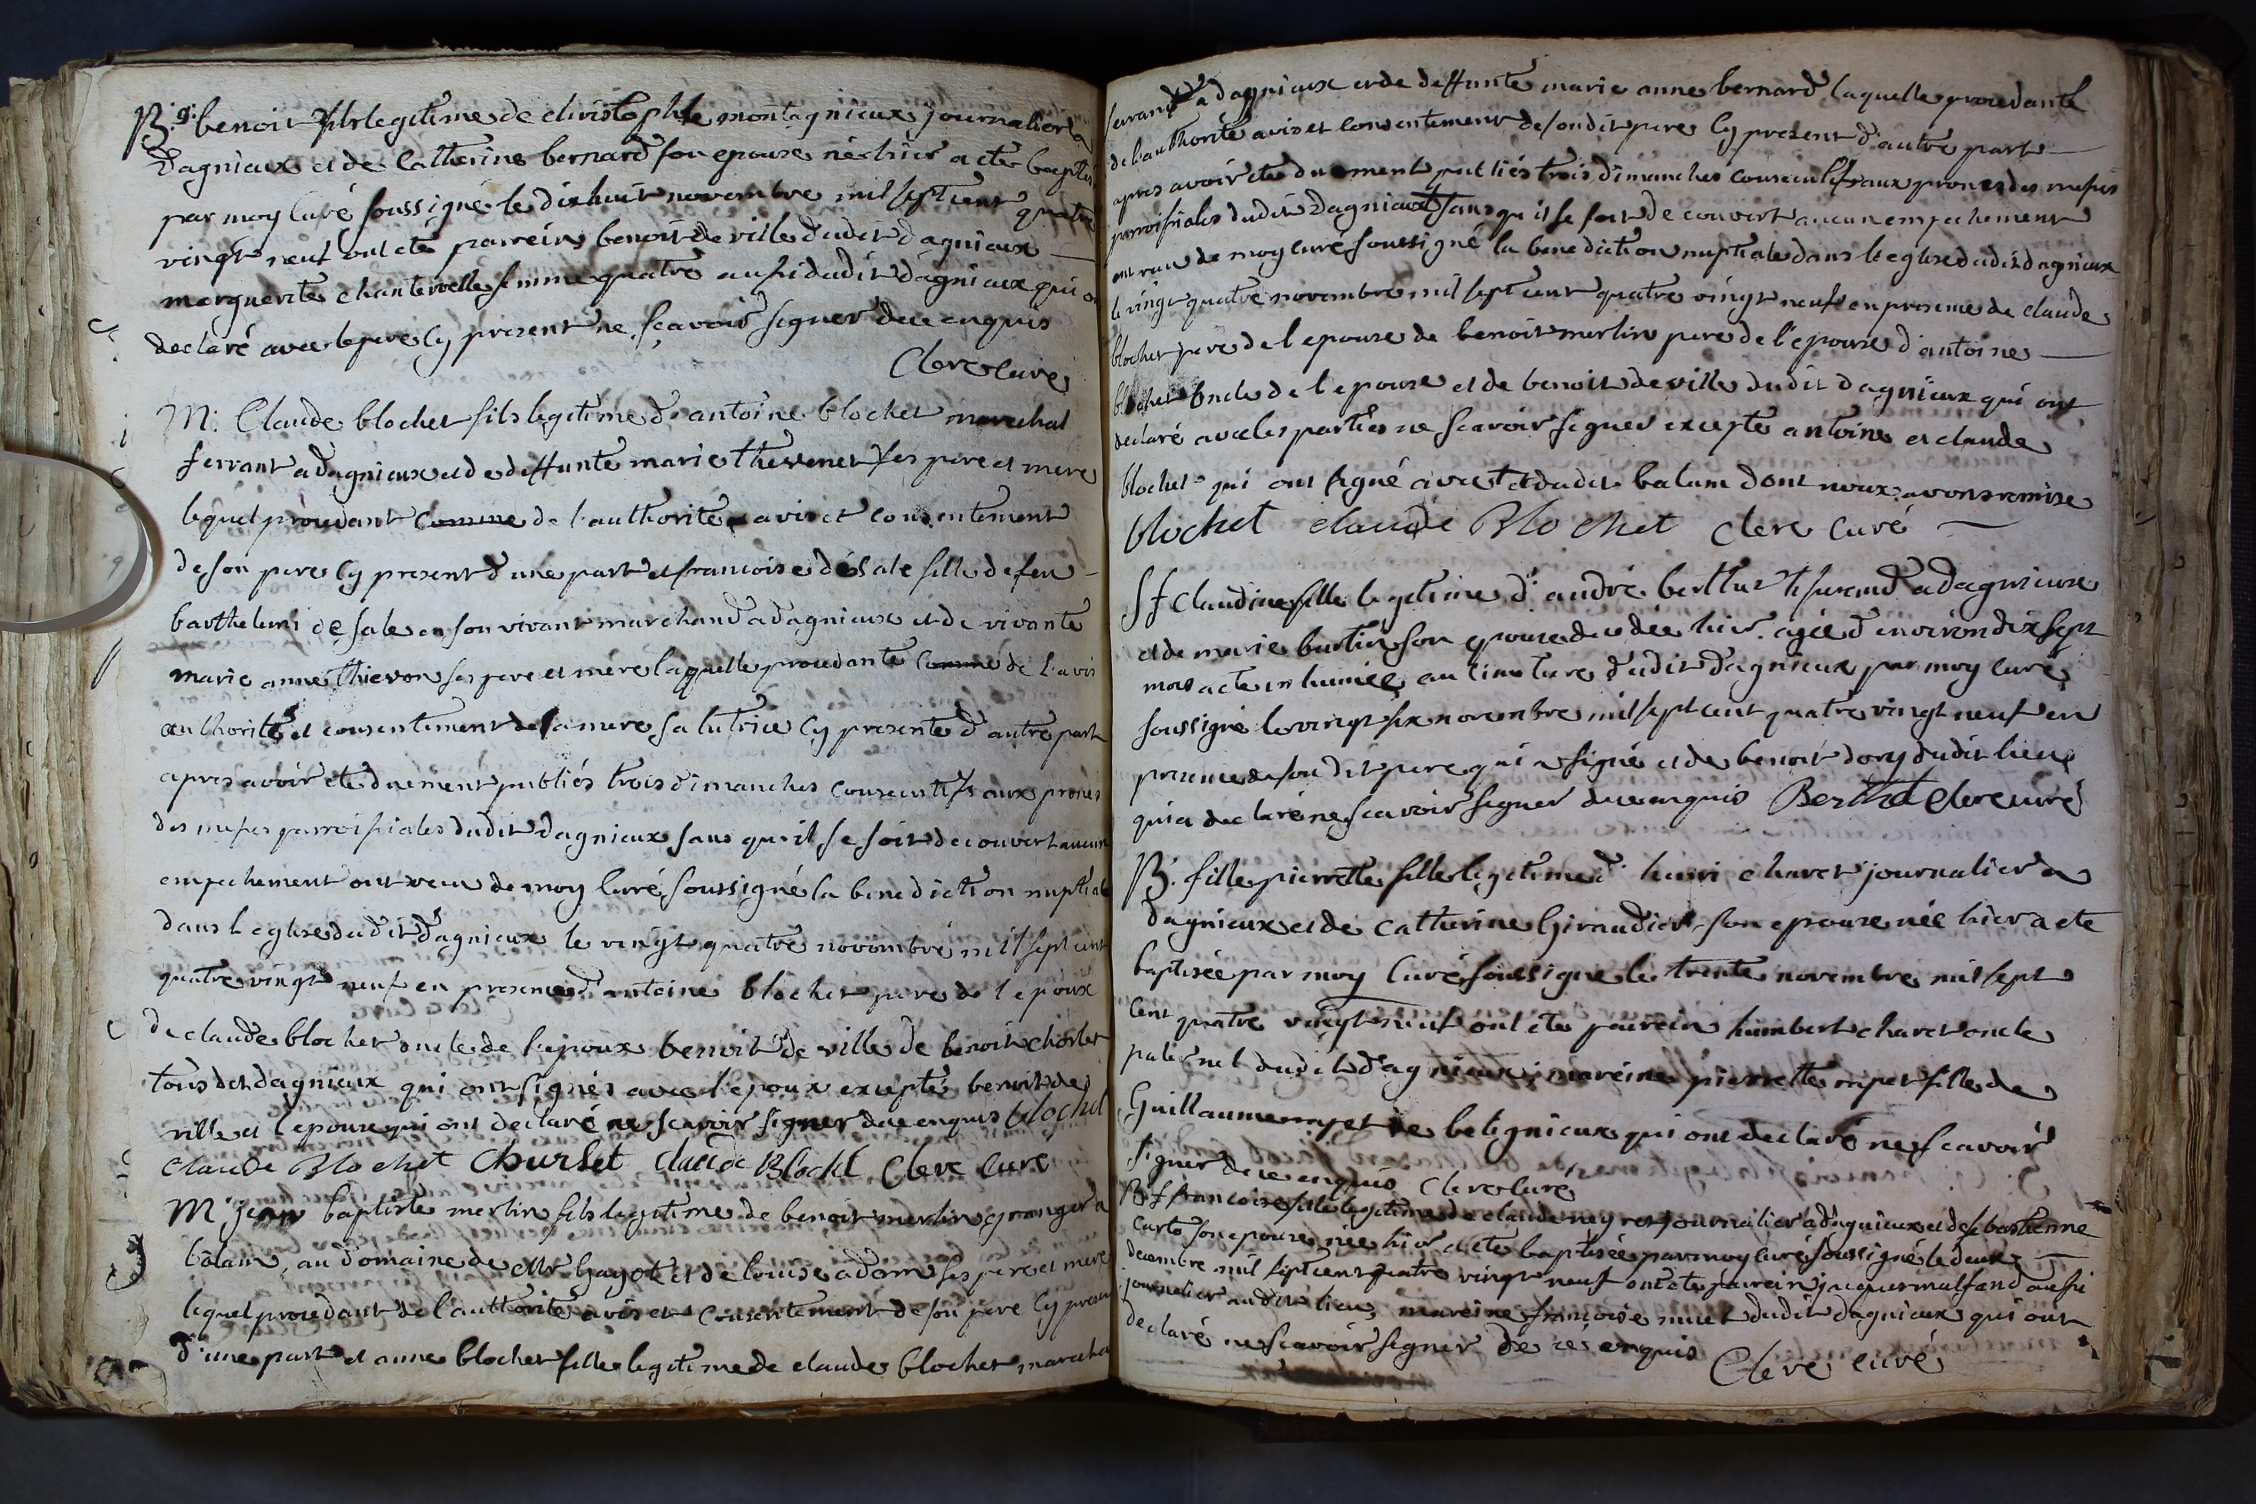 B. g. benoit fils legitime de christophle montagnieux journalier a
dagnieux et de Catherine bernard son epouse né hier a ete baptisé
par moy Curé soussigné le dixhuit novembre mil sept cent quatre
vingt neuf ont ete parrein benoit de ville dudit dagnieux
marguerite chanterelle femme quatre aussi dudit dagnieux qui on
declaré avec le pere Cy present ne sçavoir signer de ce enquis
Clerc Curé
M. Claude blochet fils legitime d'antoine blochet marechal
ferrant a dagnieux et de deffunte marie thevenet ses pere et mere
lequel procedant comme de l'authorité avis et consentement
de son pere Cy present d'une part et francoise désale fille de feu
barthelemi de sale en son vivant marchand a dagnieux et de vivante
marie anne thievon ses pere et mere laquelle procedante comme de l'avis
authorité et consentement de sa mere sa tutrice Cy presente d'autre part
apres avoir eté duement publiés trois dimanches consecutifs aux prones
des messes parroissiales dudit dagnieux sans qu'il se soit decouvert aucun
empechement ont recu de moy Curé soussigné la benediction nuptiale
dans l'eglise dudit dagnieux le vingt quatre novembre mil sept cent
quatre vingt neuf en presence d'antoine blochet pere de l'epoux
de claude blochet oncle de l'epoux benoit de ville de benoit chorlet
tous de dagnieux qui ont signés avec l'epoux excepté benoit de
ville et l'epouse qui ont declaré ne scavoir signer de ce enquis blochet
Claude Blochet Churlet Claude Blochet Clerc Curé
M. jean baptiste merlin fils legitime de benoit merlin granger a
balan, au domaine de Mr. Gayot et de louise adam ses pere et mere
lequel procedant de l'authorité avis et consentement de son pere Cy present
d'une part et anne blochet fille legitime de claude blochet marechal
ferrand a dagnieux et de deffunte marie anne bernard laquelle procedante
de l'authorité avis et consentement de son dit pere Cy present d'autre part
apres avoir ete duement publiés trois dimanches consecutifs aux prones des messes
parroissiales dudit dagnieux sans qu'il se soit decouvert aucun empechement
ont recu de moy curé soussigné la benediction nuptiale dans l'eglise dudit dagnieux
le vingt quatre novembre mil sept cent quatre vingt neuf en presence de claude
blochet pere de l'epouse de benoit merlin pere de l'epoux d'antoine
blochet oncle de l'epouse et de benoit de ville dudit dagnieux qui ont
declaré avec les parties ne scavoir signer excepté antoine et claude
blochet qui ont signé dudit balan dont nous avons remise
blochet claude Blochet Clerc Curé
S f Claudine fille legitime d'andré berthet tisserand a dagnieux
et de marie burtin son epouse decedée hier agée d'environ dix sept
mois a ete inhumée au cimetiere dudit dagnieux par moy Curé
soussigné le vingt six novembre mil sept cent quatre vingt neuf en
presence de son dit pere qui a signé et de benoit dory dudit lieu
qui a declaré ne scavoir signer de ce enquis Berthet Clerc curé
B. fille pierrette fille legitime d'henri charet journalier a
dagnieux et de Catherine Giraudier son epouse née hier a ete
baptisée par moy Curé soussigné le trente novembre mil sept
Cent quatre vingt neuf ont ete parrein humbert charet oncle
paternel dudit dagnieux, mareine pierrette fille de
Guillaume de belignieux qui ont declaré ne scavoir
signer de ce enquis Clerc Curé
B f francoise fille legitime de claude neyret journalier a dagnieux et de sebastienne
Curte son epouse née hier a ete baptisée par moy curé soussigné le deux
decembre mil sept cent quatre vingt neuf ont ete parrein jacques malfand aussi
journalier audit lieu, mareine francoise muet dudit dagnieux qui ont
declaré ne scavoir signer de ce enquis
Clerc curé